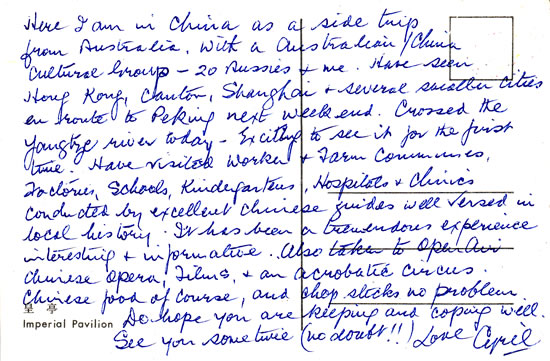 Here I am in China as a side trip
from Australia. With a Australian/China
Cultural Group - 20 Aussies & me. Have seen
Hong Kong, Canton, Shanghai & several smaller cities
en route to Peking next weekend. Crossed the
Yangtze river today - Exciting to see it for the first
time. Have visited Worker & Farm Communes,
Factories, Schools, Kindergartens, Hospitals & Clinics
conducted by excellent Chinese guides well versed in
local history. It has been a tremendous experience
interesting & informative.. Also taken to Open Air
Chinese Opera, Films, & an acrobatic circus.
Chinese food of course, and chop sticks no problem
皇 亭
Imperial Pavilion
Do hope you are keeping and coping well.
See you sometime (no doubt!!) Love Cyril